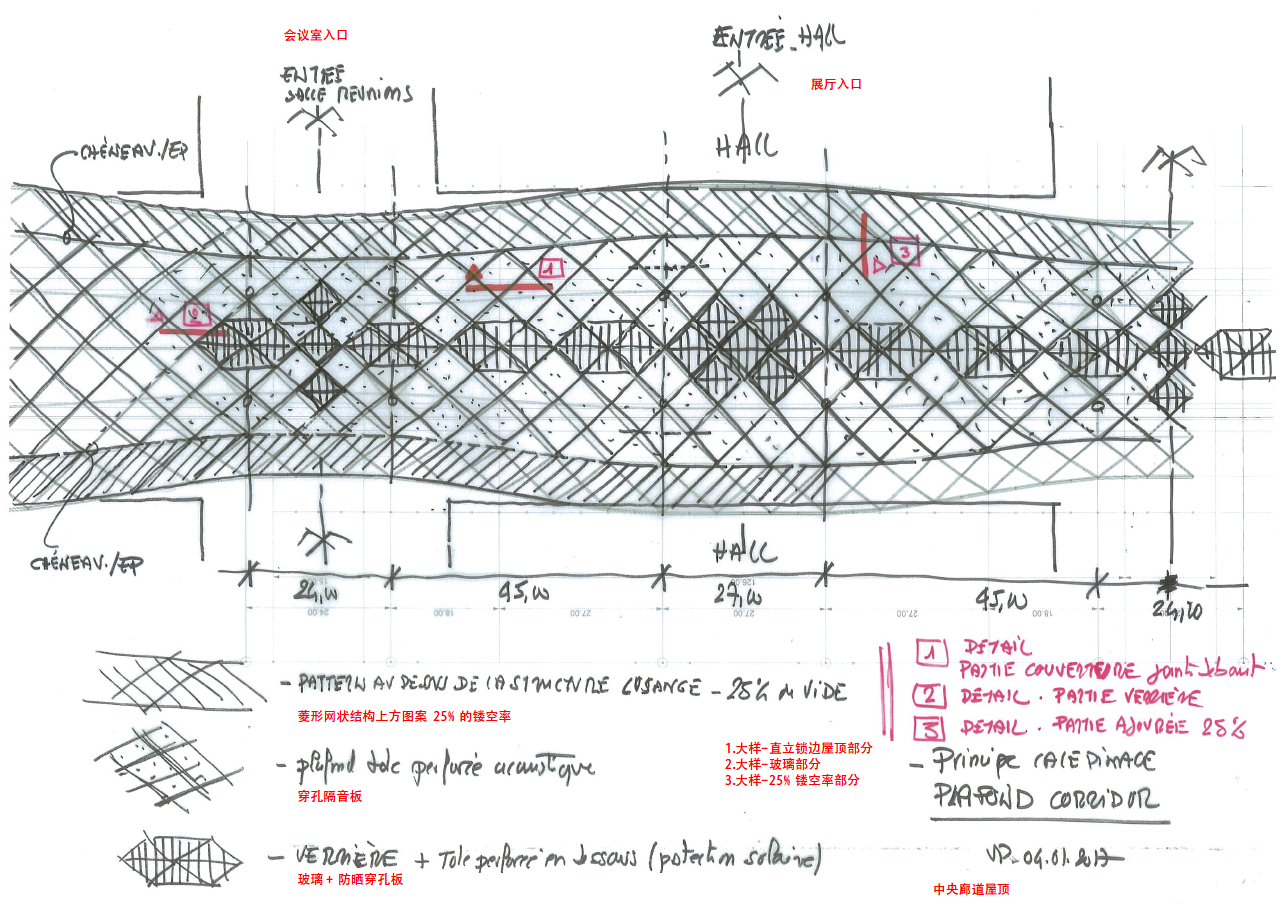 会议室入口
ENTRÉE HALL
展厅入口
ENTRÉE
SALLE REUNIONS
HALL
CHÉNEAU./EP
3
1
2
CHÉNEAU./EP
HALL
126.00
24,00
45,00
27,00
45,00
24,00
24.00
18.00
27.00
27.00
27.00
18.00
- PATTERN AU DESSUS DE LA STRUCTURE LOSANGE - 25% de VIDE
菱形网状结构上方图案 25% 的镂空率
- plafond tole perforée acoustique
穿孔隔音板
- VERRIÈRE + Tole perforée en dessous (protection solaire)
玻璃 + 防晒穿孔板
1 DETAIL
PARTIE COUVERTURE joint debout
2 DETAIL . PARTIE VERRIÈRE
3 DETAIL . PARTIE AJOURÉE 25%
1.大样-直立锁边屋顶部分
2.大样-玻璃部分
3.大样-25% 镂空率部分
- Principe CALEPINAGE
PLAFOND CORRIDOR
VP. 04.01.2017
中央廊道屋顶